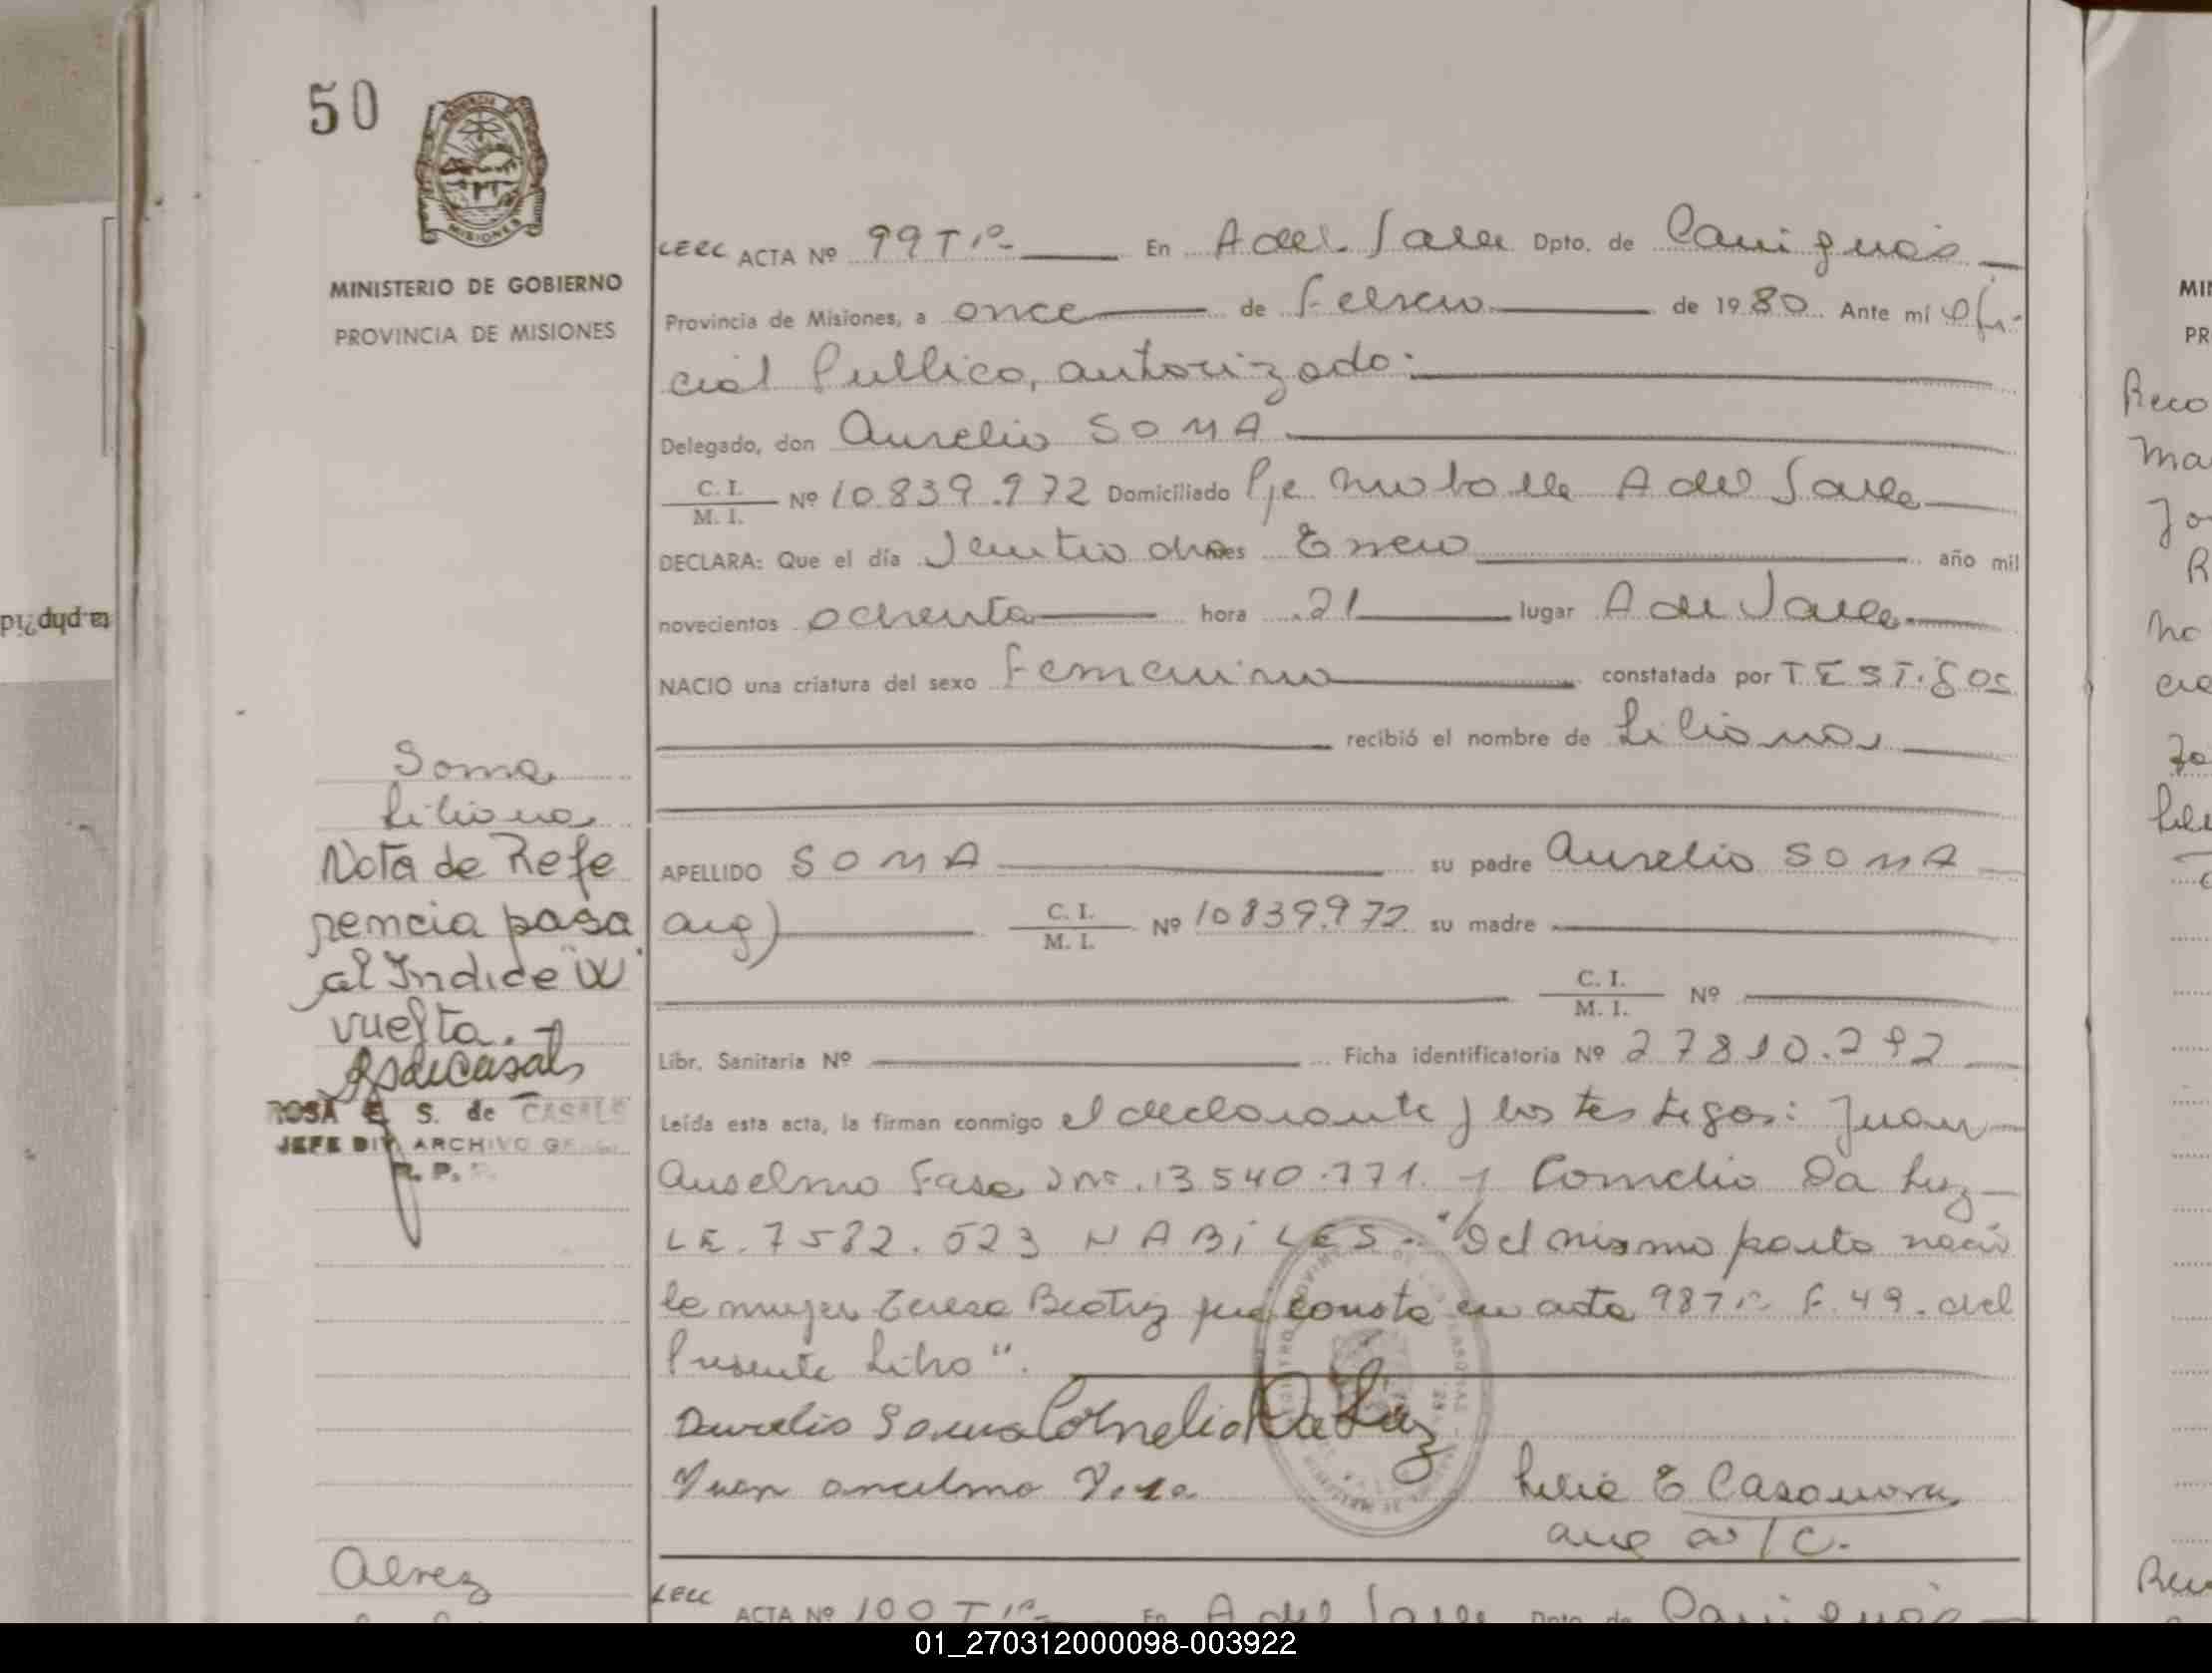 50
MINISTERIO DE GOBIERNO
PROVINCIA DE MISIONES
LEEL ACTA Nº 99 Tº1º En A del Valle Dpto. de Cainguás
Provincia de Misiones, a once de Febrero de 1980 Ante mí Ofi-
cial Publico, autorizado:
Delegado, don Aurelio SOMA
C. I. / M. I. Nº 10.839.972 Domiciliado Pje A del Valle
DECLARA: Que el día mes Enero año mil
novecientos ochenta hora 21 lugar A del Valle
NACIO una criatura del sexo femenino constatada por TESTigos
recibió el nombre de Liliana
APELLIDO SOMA su padre Aurelio SOMA
arg) C. I. / M. I. Nº 10839.972 su madre
C. I. / M. I. Nº
Libr. Sanitaria Nº Ficha identificatoria Nº 27810.292
Leída esta acta, la firman conmigo el declarante y los testigos: Juan
Anselmo 13540.771 y Cornelio Da Luz
LE. 7582.523 HABiLES. "Del mismo parto nació
la mujer Teresa Beatriz que consta en acta 98 Tº1º F. 49. del
Presente Libro".
Aurelio Soma Cornelio Da Luz
Juan ancelmo
Lelia E Casanova
a/C.
Soma
Liliana
Nota de Refe
rencia pasa
al Indice
vuelta.
ROSA E. S. de CASALS
JEFE DIV. ARCHIVO
R. P.
Alvez
LEEL ACTA Nº 100 Tº1º En A del Valle Dpto. de Cainguás
MI
PR
Reco
Ma
Jo
ta.php?id
01_270312000098-003922